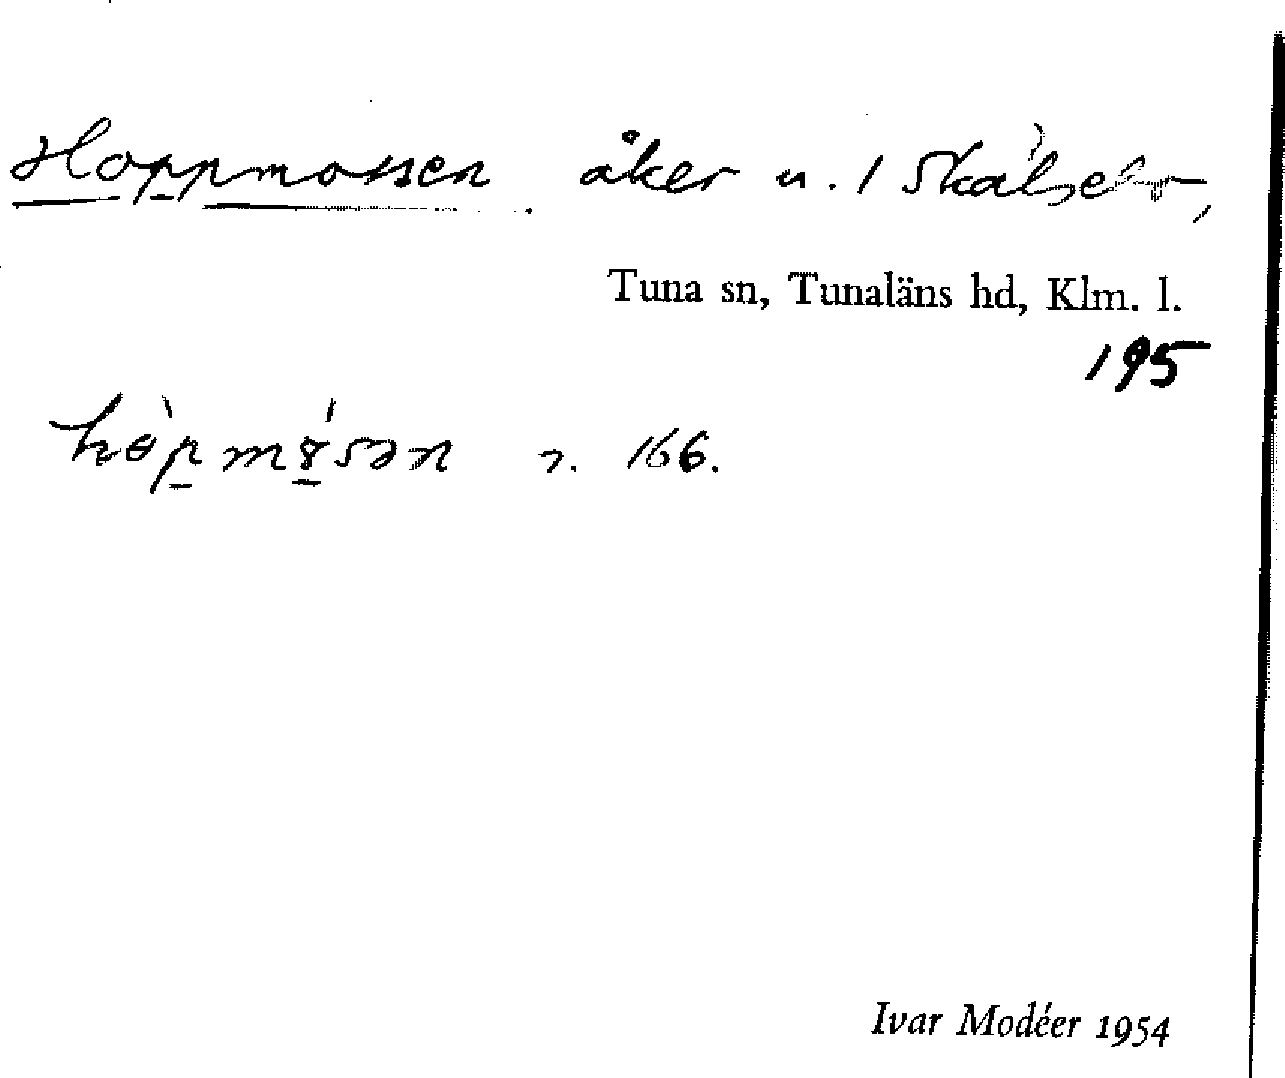 Hoppmossen åker u. 1 Skälsebo,
Tuna sn, Tunaläns hd, Klm. l.
195
166.
Ivar Modéer 1954